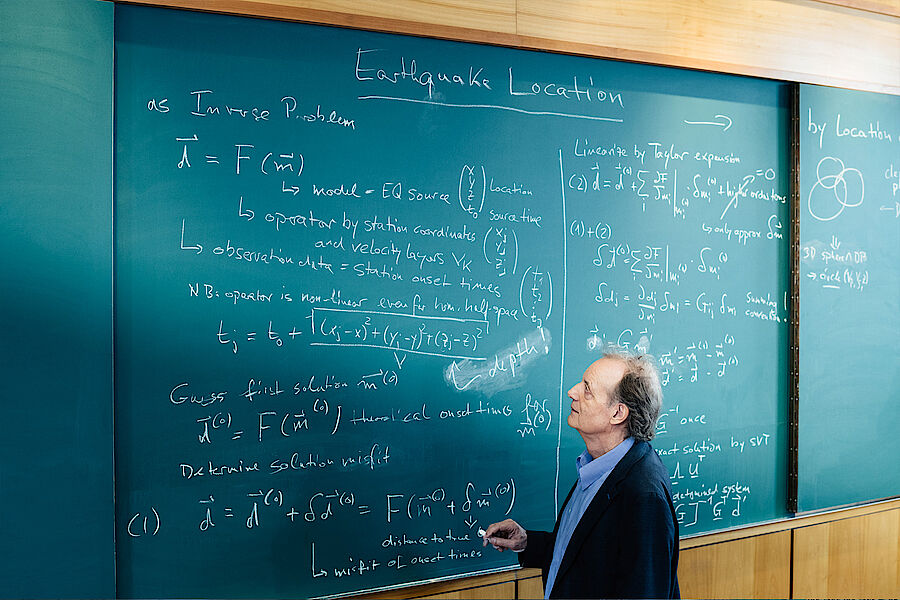 Earthquake Location
as Inverse Problem
d⃗ = F(m⃗)
↳ model = EQ source (x y z t₀) Location
source time
↳ operator by station coordinates (xⱼ yⱼ zⱼ)
and velocity layers Vₖ
↳ observation data = station onset times (t₁ t₂ ⋮ tⱼ)
NB: operator is non-linear even for hom. half-space
tⱼ = t₀ + √((xⱼ-x)²+(yⱼ-y)²+(zⱼ-z)²)
V
depth!
Guess first solution m⃗⁽⁰⁾
d⃗⁽⁰⁾ = F(m⃗⁽⁰⁾) theoretical onset times for m⃗⁽⁰⁾
Determine solution misfit
(1) d⃗ = d⃗⁽⁰⁾ + δd⃗⁽⁰⁾ = F(m⃗⁽⁰⁾ + δm⃗⁽⁰⁾)
distance to true
↳ misfit of onset times
→
Linearize by Taylor expansion
(2) d⃗ = d⃗⁽⁰⁾ + Σᵢ ∂F/∂mᵢ |mᵢ⁽⁰⁾ · δmᵢ⁽⁰⁾ + higher orders =0
↳ only approx δm⃗
(1)+(2)
δd⃗⁽⁰⁾ = Σᵢ ∂F/∂mᵢ |mᵢ⁽⁰⁾ · δmᵢ⁽⁰⁾
δdⱼ = ∂dⱼ/∂mᵢ δmᵢ = Gᵢⱼ δmᵢ summing convention!
d⃗' = G m⃗'
m⃗' = m⃗ - m⃗⁽⁰⁾
d⃗' = d⃗ - d⃗⁽⁰⁾
G⁻¹ once
exact solution by SVT
Λ Uᵀ
determined system
G]⁻¹ Gᵀ d⃗'
by Location
3D sphere
→ circle